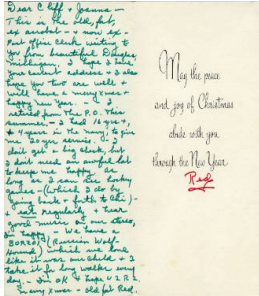 Dear Cliff + Joanna —
This is the old, fat,
ex acrobat — + now ex-
Post Office Clerk writing to
you from beautiful
Michigan. I hope I have
your correct address + also
hope you two are well +
will have a merry xmas +
happy new year. I
retired from the P.O. this
summer — I had 16 yrs +,
+ 4 years in the navy, to give
me 20 yrs service. I
don't get a big check, but
I don't need an awful lot
to keep me happy as
long as I can see hockey
games — (which I do by
going back + forth to this) —
+ eat regularly + hear
good music on our stereo,
I'm happy — We have a
BORZOI (Russian Wolf
Hound) which we love
like it was our child + I
take it for long walks every
day. I'm OK + hope U 2 R 2.
Merry xmas — old fat Red.
May the peace
and joy of Christmas
abide with you
through the New Year
Red